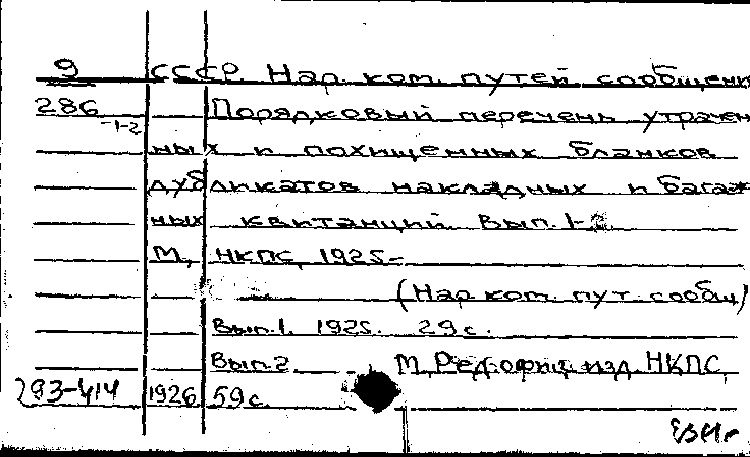 9 СССР. Нар. ком. путей сообщени
286 -1-2 Порядковый перечень утрачен
ных и похищенных бланков
дубликатов накладных и багаж
ных квитанций Вып. 1-2
М, НКПС, 1925-
(Нар ком. пут. сообщ)
Вып.1. 1925. 29с.
Вып.2. М, Ред.офиц.изд. НКПС,
293-414 1926 59с.